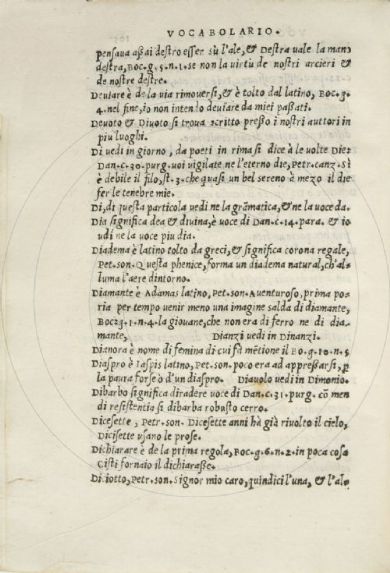 VOCABOLARIO.
pensaua aßai destro esser su l'ale, & Destra uale la mano
destra, Boc.g.5.n.1. se non la uirtu de nostri arcieri &
de nostre destre.
Deuiare è de la uia rimouersi, & è tolto dal latino, Boc.3.
4.nel fine, io non intendo deuiare da miei paßati.
Deuoto & Diuoto si troua scritto preßo i nostri auttori in
piu luoghi.
Di uedi in giorno, da poeti in rima si dice à le uolte Die:
Dan.c.30.purg.uoi uigilate ne l'eterno die, Petr.canz.Si
è debile il filo, st.3.che quasi un bel sereno à mezo il die
fer le tenebre mie.
Di, di questa particola uedi ne la grãmatica, & ne la uoce da.
Dia significa dea & diuina, è uoce di Dan.c.14.para. & io
udi ne la uoce piu dia.
Diadema è latino tolto da greci, & significa corona regale,
Pet.son.Questa phenice, forma un diadema natural, ch'al-
luma l'aere dintorno.
Diamante è Adamas latino, Pet.son.Auenturoso, prima po-
ria per tempo uenir meno una imagine salda di diamante,
Boc.g.1.n.4.la giouane, che non era di ferro ne di dia-
mante, Dianzi uedi in Dinanzi.
Dianora è nome di femina di cui fà mẽtione il Bo.g.10.n.5
Diaspro è Iaspis latino, Pet.son.poco era ad appreßarsi, p
la paura forse ò d'un diaspro. Diauolo uedi in Dimonio.
Dibarbo significa diradere uoce di Dan.c.31.purg. cõ men
di resistentia si dibarba robusto cerro.
Dicesette, Petr.son. Dicesette anni hà già riuolto il cielo,
Dicisette usano le prose.
Dichiarare è de la prima regola, Boc.g.6.n.2.in poca cosa
Cisti fornaio il dichiaraße.
Diciotto, Petr.son.Signor mio caro, quindici l'una, & l'al-